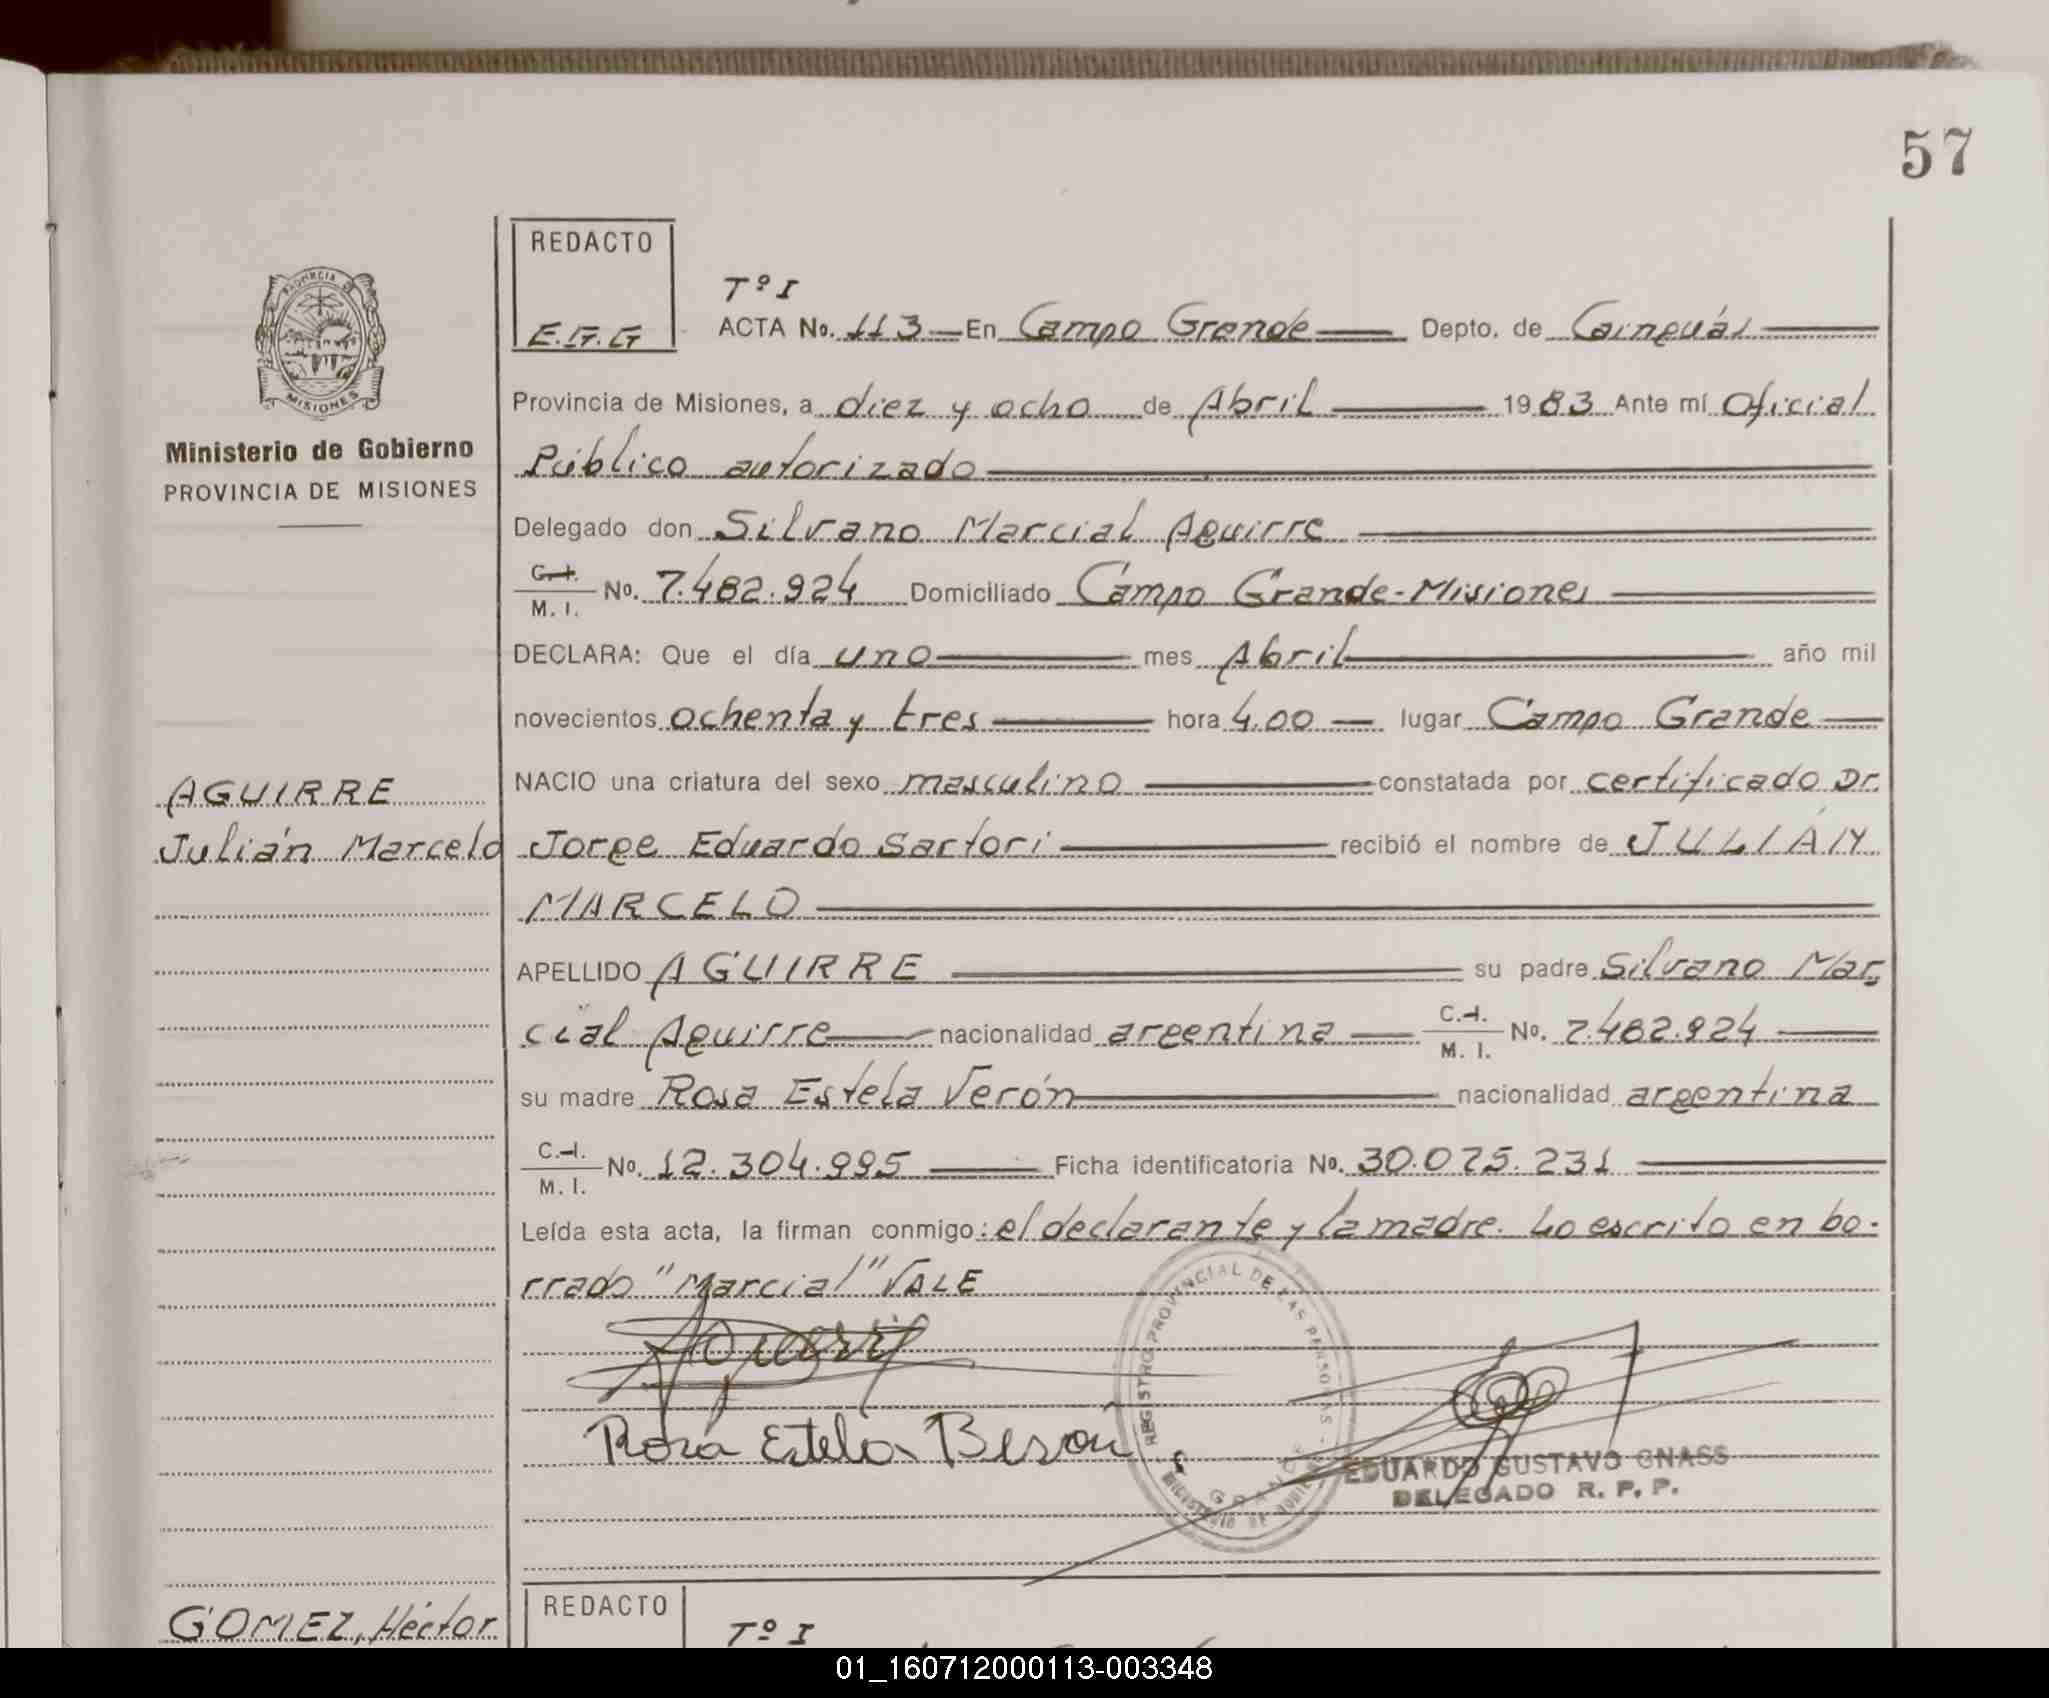 57
REDACTO
E.G.G
Tº I
ACTA No. 113 En Campo Grande Depto. de Cainguás
Provincia de Misiones, a diez y ocho de Abril 1983 Ante mí Oficial
Público autorizado
PROVINCIA DE
MISIONES
Ministerio de Gobierno
PROVINCIA DE MISIONES
Delegado don Silvano Marcial Aguirre
C. I.
M. I. No. 7.482.924 Domiciliado Campo Grande-Misiones
DECLARA: Que el día uno mes Abril año mil
novecientos ochenta y tres hora 4.00 lugar Campo Grande
AGUIRRE
Julián Marcelo
NACIO una criatura del sexo masculino constatada por certificado Dr.
Jorge Eduardo Sartori recibió el nombre de JULIÁN
MARCELO
APELLIDO AGUIRRE su padre Silvano Mar-
cial Aguirre nacionalidad argentina C. I. M. I. No. 7.482.924
su madre Rosa Estela Verón nacionalidad argentina
C. I.
M. I. No. 12.304.995 Ficha identificatoria No. 30.075.231
Leída esta acta, la firman conmigo: el declarante y la madre. Lo escrito en bo-
rrado "Marcial" VALE
Rosa Estela Beron
REGISTRO PROVINCIAL DE LAS PERSONAS - MINISTERIO DE GOBIERNO
EDUARDO GUSTAVO GNASS
DELEGADO R. P. P.
GOMEZ, Héctor
REDACTO
Tº I
01_160712000113-003348